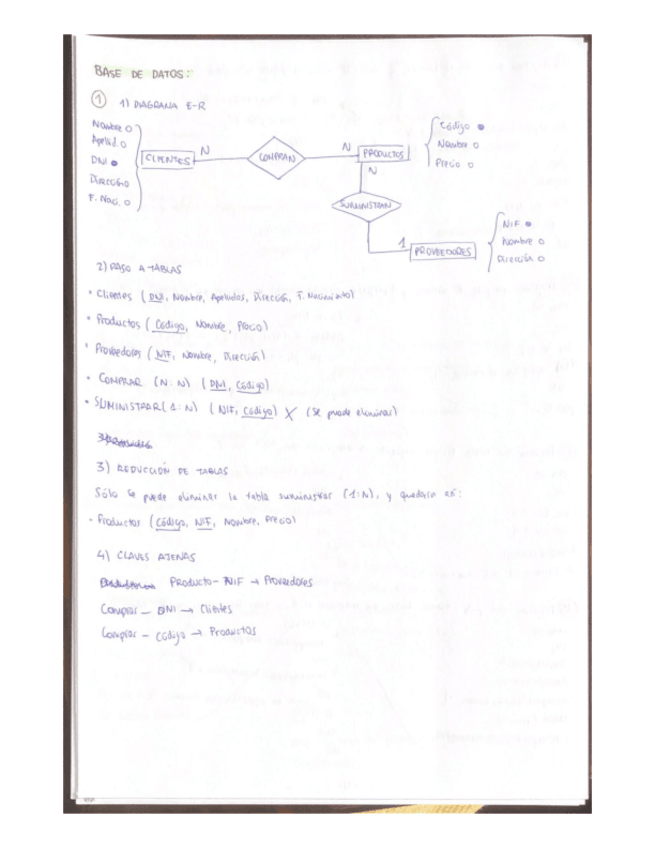 BASE DE DATOS:
1 1) DIAGRAMA E-R
Nombre
Apellid.
DNI
Dirección
F. Naci.
CLIENTES
N
COMPRAN
N
PRODUCTOS
Código
Nombre
Precio
N
SUMINISTRAN
1
PROVEEDORES
NIF
Nombre
Dirección
2) PASO A TABLAS
• Clientes (DNI, Nombre, Apellidos, Dirección, F. Nacimiento)
• Productos (Código, Nombre, Precio)
• Proveedores (NIF, Nombre, Dirección)
• COMPRAR (N:N) (DNI, Código)
• SUMINISTRAR (1:N) (NIF, Código) X (Se puede eliminar)
3) REDUCCIÓN DE TABLAS
Sólo se puede eliminar la tabla suministrar (1:N), y quedaría así:
- Productos (Código, NIF, Nombre, Precio)
4) CLAVES AJENAS
Producto - NIF → Proveedores
Comprar - DNI → Clientes
Comprar - Código → Productos